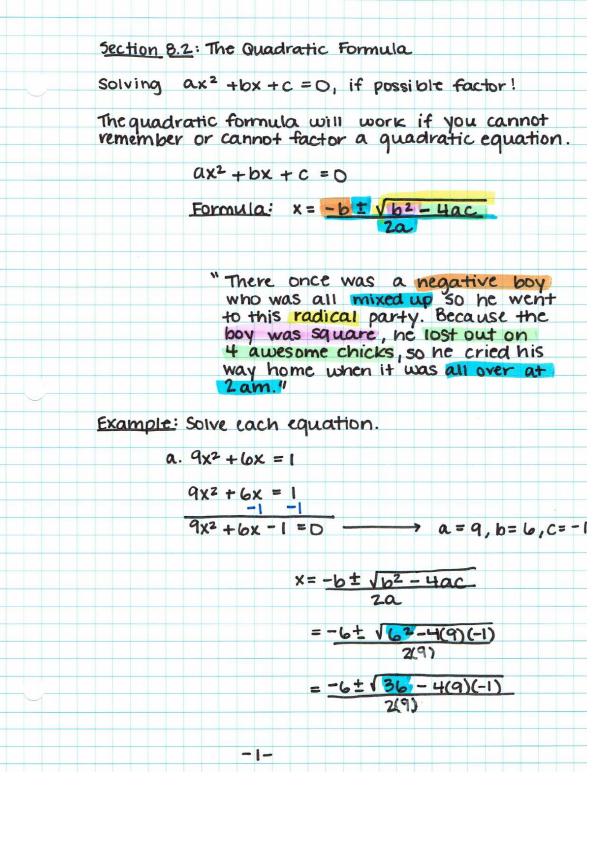 Section 8.2: The Quadratic Formula
Solving ax² + bx + c = 0, if possible factor!
The quadratic formula will work if you cannot
remember or cannot factor a quadratic equation.
ax² + bx + c = 0
Formula: x = -b ± √b² - 4ac
2a
"There once was a negative boy
who was all mixed up so he went
to this radical party. Because the
boy was square, he lost out on
4 awesome chicks, so he cried his
way home when it was all over at
2 am."
Example: Solve each equation.
a. 9x² + 6x = 1
9x² + 6x = 1
-1 -1
9x² + 6x - 1 = 0 → a = 9, b = 6, c = -1
x = -b ± √b² - 4ac
2a
= -6 ± √6² - 4(9)(-1)
2(9)
= -6 ± √36 - 4(9)(-1)
2(9)
-1-